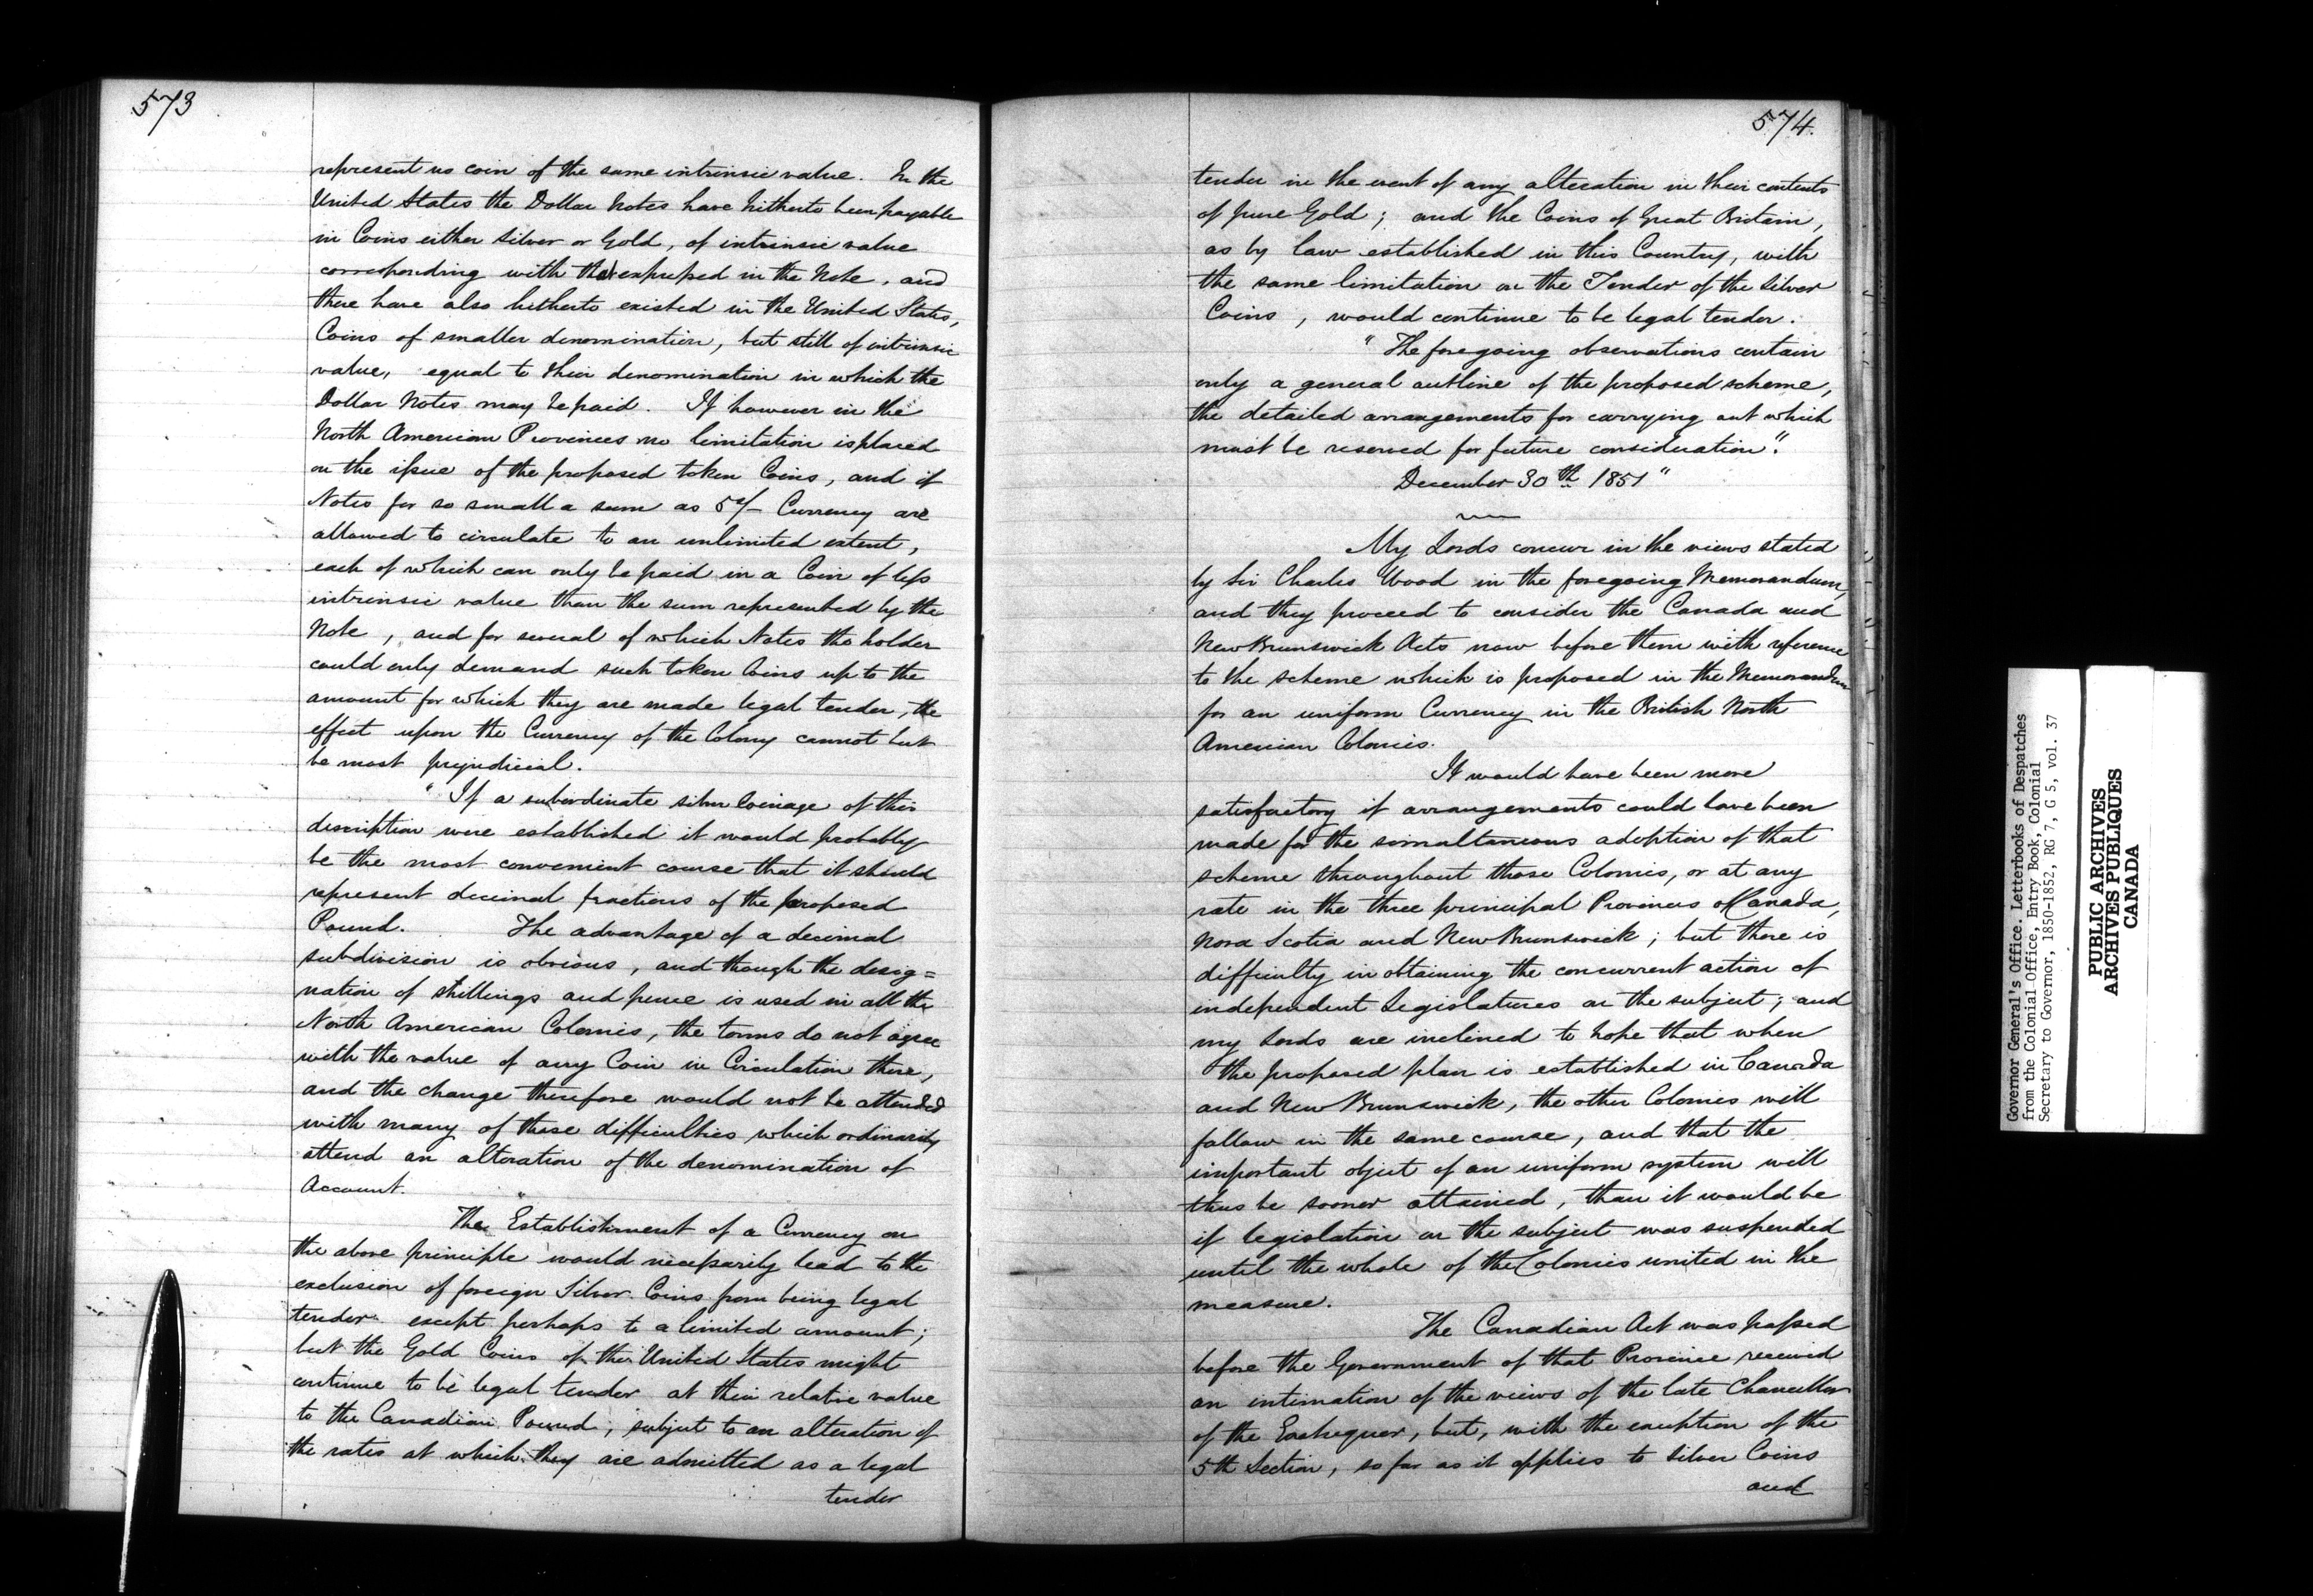 573
represent no coin of the same intrinsic value. In the
United States the Dollar Notes have hitherto been payable
in Coins either Silver or Gold, of intrinsic value
corresponding with that expressed in the Note, and
there have also hitherto existed in the United States,
Coins of smaller denomination, but still of intrinsic
value, equal to their denomination in which the
Dollar Notes may be paid. If however in the
North American Provinces no limitation is placed
on the issue of the proposed token Coins, and if
Notes for so small a sum as 5s/- Currency are
allowed to circulate to an unlimited extent,
each of which can only be paid in a Coin of less
intrinsic value than the sum represented by the
Note, and for several of which Notes the holder
could only demand such token Coins up to the
amount for which they are made legal tender, the
effect upon the Currency of the Colony cannot but
be most prejudicial.
"If a subordinate silver Coinage of this
discription were established it would probably
be the most convenient course that it should
represent decimal fractions of the proposed
Pound. The advantage of a decimal
subdivision is obvious, and though the desig=
nation of shillings and pence is used in all the
North American Colonies, the terms do not agree
with the value of any Coin in Circulation there,
and the change therefore would not be attended
with many of those difficulties which ordinarily
attend an alteration of the denomination of
Account.
"The Establishment of a Currency on
the above principle would necessarily lead to the
exclusion of foreign Silver Coins from being legal
tender except perhaps to a limited amount;
but the Gold Coins of the United States might
continue to be legal tender at their relative value
to the Canadian Pound, subject to an alteration of
the rates at which they are admitted as a legal
tender
574.
tender in the event of any alteration in their contents
of pure Gold; and the Coins of Great Britain,
as by law established in this Country, with
the same limitation on the Tender of the Silver
Coins, would continue to be legal tender.
"The foregoing observations contain
only a general outline of the proposed scheme,
the detailed arrangements for carrying out which
must be reserved for future consideration."
December 30th 1851"
My Lords concur in the views stated
by Sir Charles Wood in the foregoing Memorandum,
and they proceed to consider the Canada and
New Brunswick Acts now before them with reference
to the scheme which is proposed in the Memorandum
for an uniform Currency in the British North
American Colonies.
It would have been more
satisfactory if arrangements could have been
made for the simultaneous adoption of that
scheme throughout those Colonies, or at any
rate in the three principal Provinces of Canada,
Nova Scotia and New Brunswick; but there is
difficulty in obtaining the concurrent action of
independent Legislatures on the subject; and
my Lords are inclined to hope that when
the proposed plan is established in Canada
and New Brunswick, the other Colonies will
follow in the same course, and that the
important object of an uniform system will
thus be sooner attained, than it would be
if legislation on the subject was suspended
until the whole of the Colonies united in the
measure.
The Canadian Act was passed
before the Government of that Province received
an intimation of the views of the late Chancellor
of the Exchequer, but, with the exception of the
5th Section, so far as it applies to Silver Coins
and
Governor General's Office. Letterbooks of Despatches
from the Colonial Office, Entry Book, Colonial
Secretary to Governor, 1850-1852, RG 7, G 5, vol. 37
PUBLIC ARCHIVES
ARCHIVES PUBLIQUES
CANADA